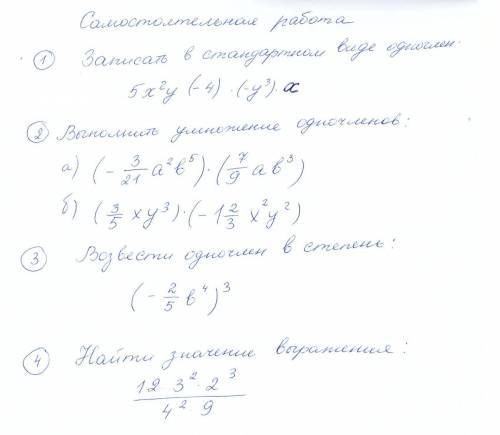 Самостоятельная работа
① Записать в стандартном виде одночлен.
5x²y (-4) · (-y³) · x
② Выполнить умножение одночленов:
а) (- 3/21 a²b⁵) · (7/9 ab³)
б) (3/5 xy³) · (-1 2/3 x²y²)
③ Возвести одночлен в степень:
(- 2/5 b⁴)³
④ Найти значение выражения:
12 3² · 2³
4² · 9